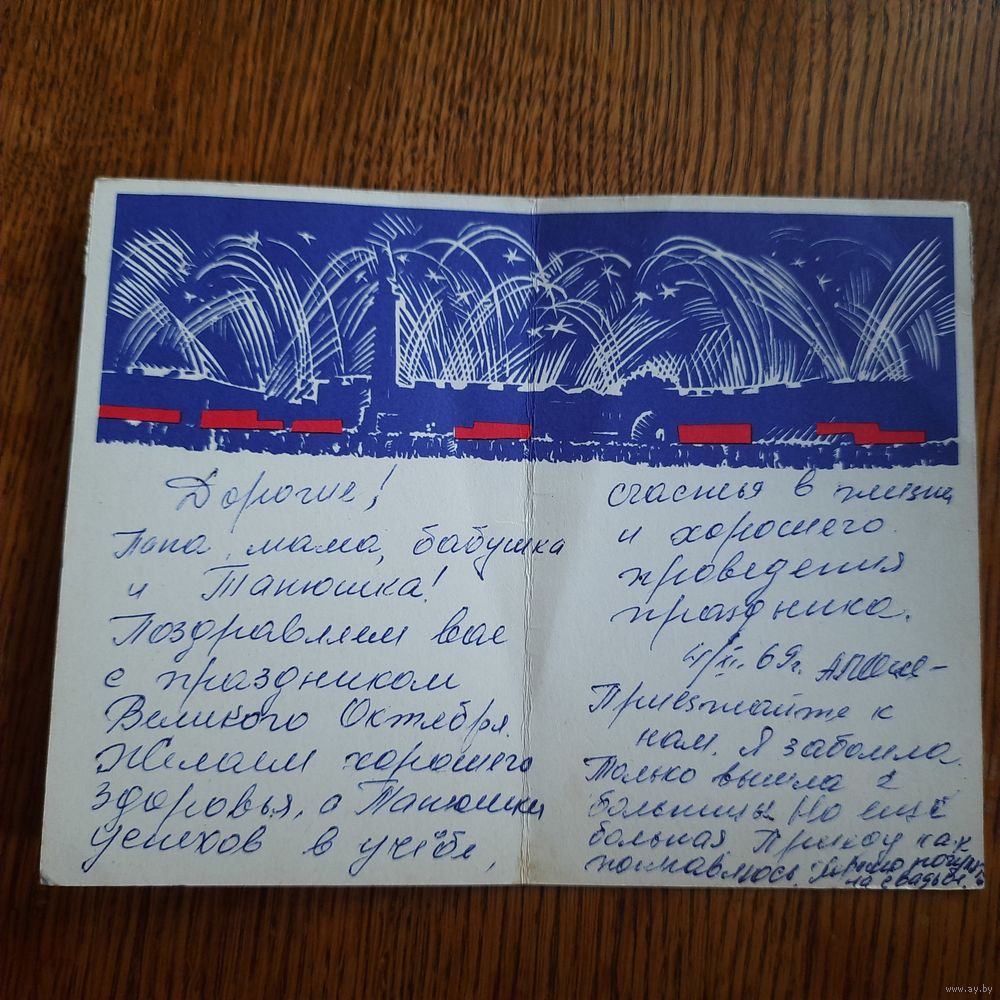 Дорогие!
Папа, мама, бабушка
и Танюшка!
Поздравляем вас
с праздником
Великого Октября.
Желаем хорошего
здоровья, а Танюшки
успехов в учёбе,
счастья в жизни
и хорошего
проведения
праздника.
XI. 69г.
Приезжайте к
нам. Я заболела.
Только вышла с
больницы. Но ещё
больная Приеду как
поправлюсь.
на свадьбе.
www.ay.by